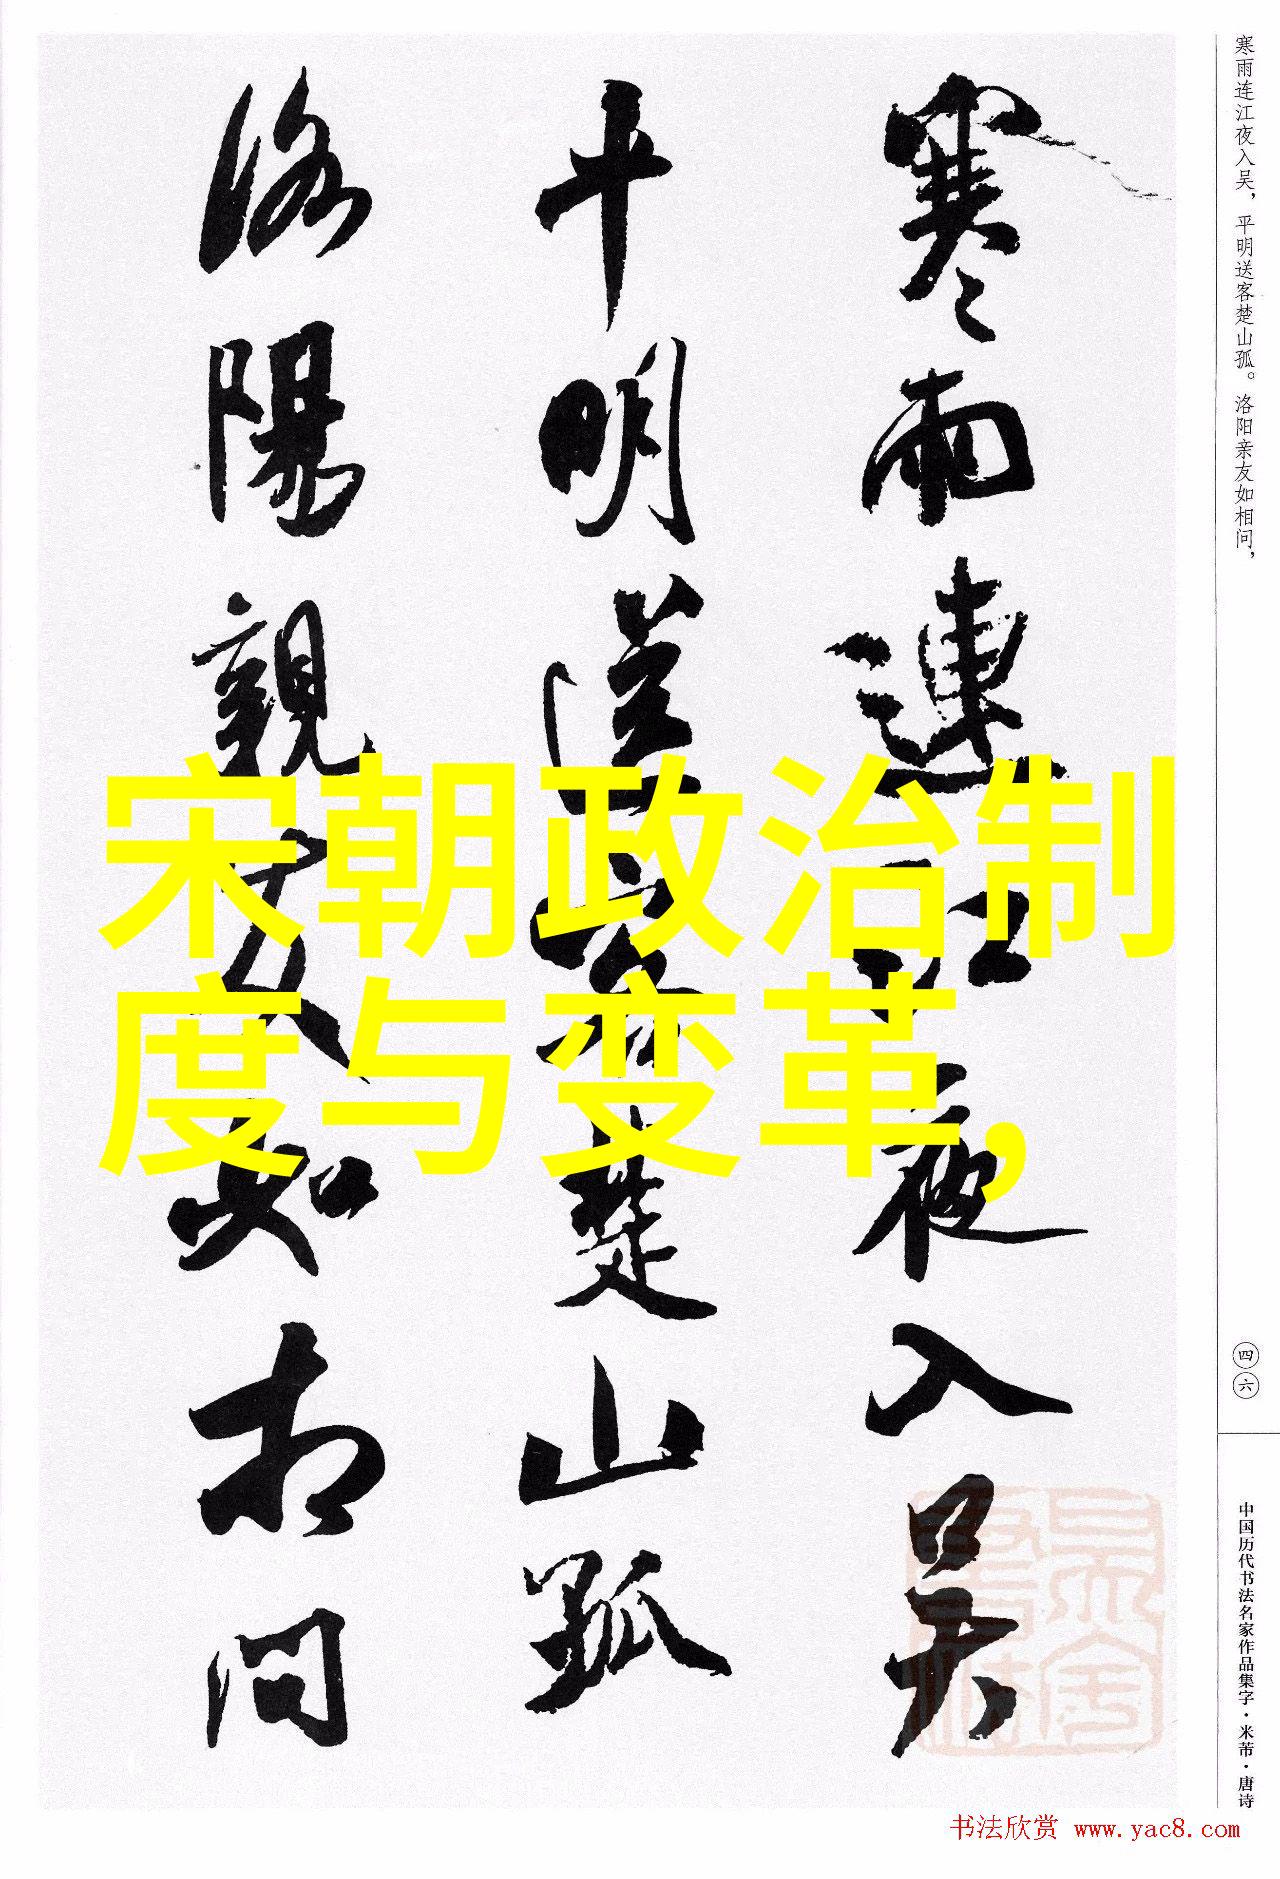 寒雨連江夜入吴
平明送客楚山孤
洛陽親友如相问
宋朝政治制
度与变革,
寒雨连江夜入吴，平明送客楚山孤。洛阳亲友如相问，
四六
中国历代书法名家作品集字·米芾·唐诗
书法欣赏 www.yac8.com